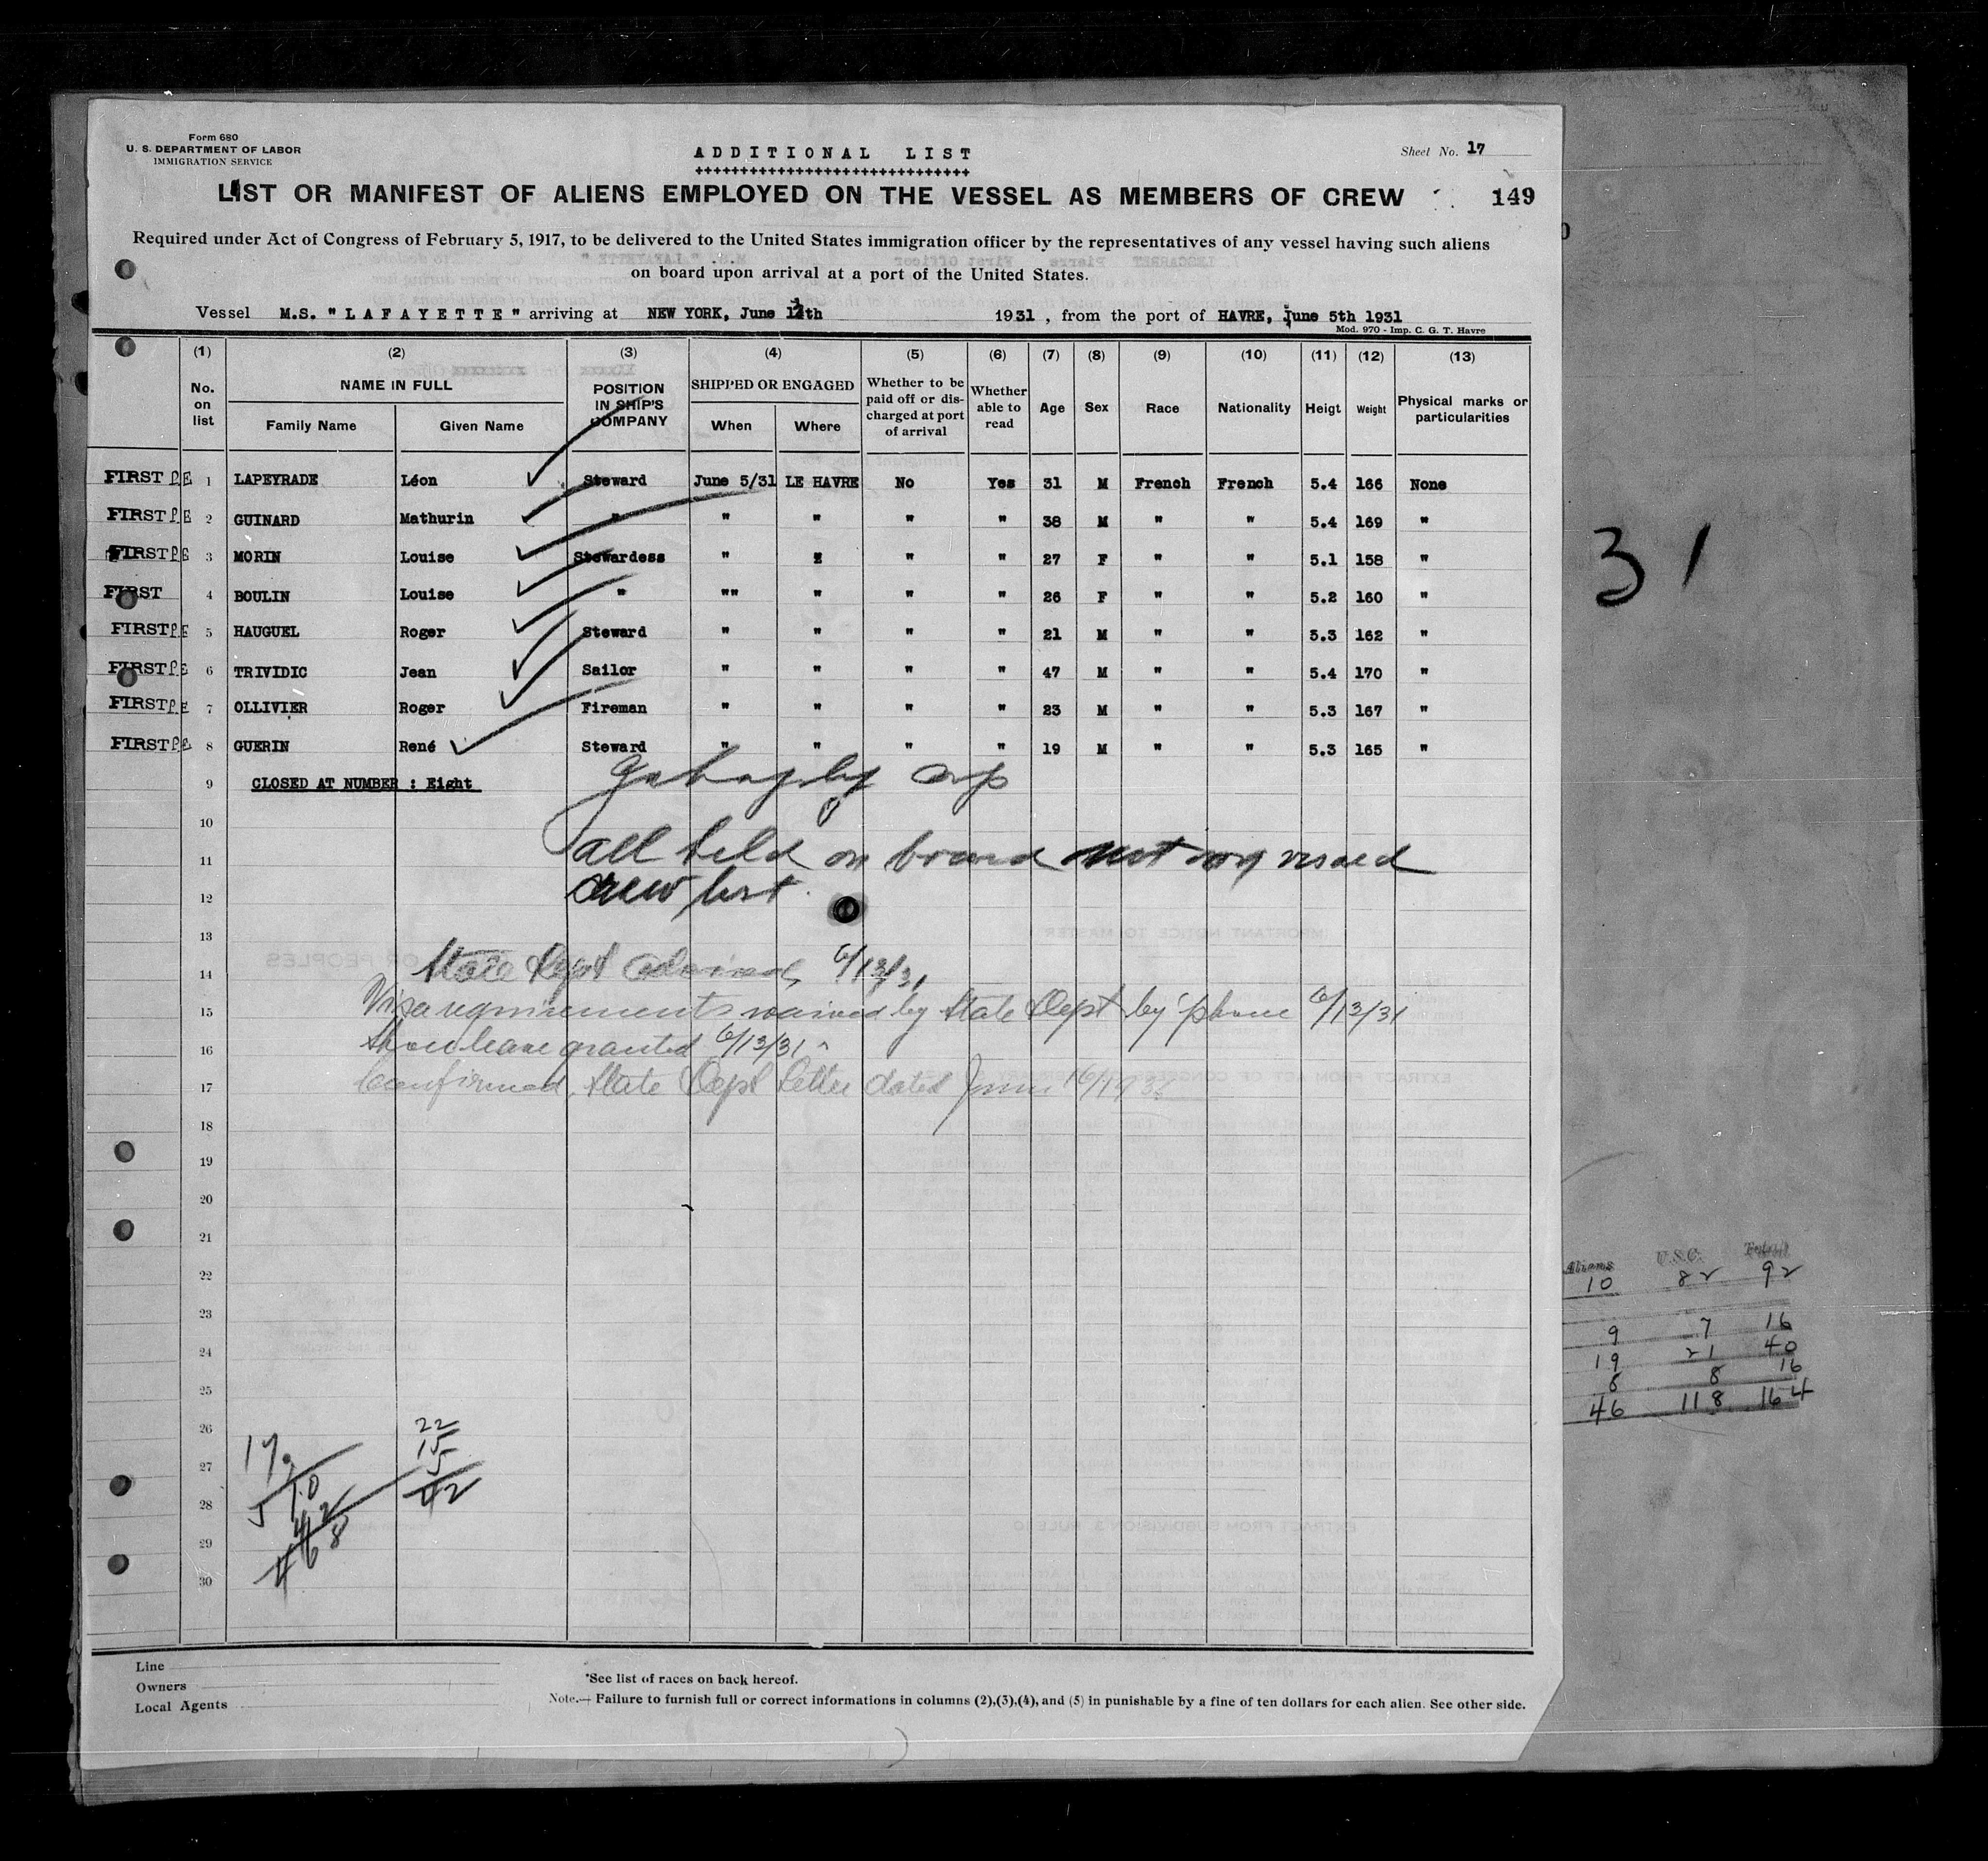 Form 680
U. S. DEPARTMENT OF LABOR
IMMIGRATION SERVICE
ADDITIONAL LIST
++++++++++++++++++++++++++++++
Sheet No. 17
LIST OR MANIFEST OF ALIENS EMPLOYED ON THE VESSEL AS MEMBERS OF CREW
149
Required under Act of Congress of February 5, 1917, to be delivered to the United States immigration officer by the representatives of any vessel having such aliens
on board upon arrival at a port of the United States.
Vessel M.S. "LAFAYETTE" arriving at NEW YORK, June 13th 1931, from the port of HAVRE, June 5th 1931
Mod. 970 - Imp. C. G. T. Havre
(1) (2) (3) (4) (5) (6) (7) (8) (9) (10) (11) (12) (13)
No. on list NAME IN FULL Family Name Given Name POSITION IN SHIP'S COMPANY SHIPPED OR ENGAGED When Where Whether to be paid off or discharged at port of arrival Whether able to read Age Sex Race Nationality Heigt Weight Physical marks or particularities
FIRST PE 1 LAPEYRADE Léon Steward June 5/31 LE HAVRE No Yes 31 M French French 5.4 166 None
FIRST PE 2 GUINARD Mathurin " " " " " 38 M " " 5.4 169 "
FIRST PE 3 MORIN Louise Stewardess " " " " 27 F " " 5.1 158 "
FIRST 4 BOULIN Louise " "" " " " 26 F " " 5.2 160 "
FIRST PE 5 HAUGUEL Roger Steward " " " " 21 M " " 5.3 162 "
FIRST PE 6 TRIVIDIC Jean Sailor " " " " 47 M " " 5.4 170 "
FIRST PE 7 OLLIVIER Roger Fireman " " " " 23 M " " 5.3 167 "
FIRST PE 8 GUERIN René Steward " " " " 19 M " " 5.3 165 "
9 CLOSED AT NUMBER : Eight
10
11 all held on board not on visaed
12 crew list
13
14 State Dept 6/13/31
15 Visa requirements waived by State Dept by 'phone 6/13/31
16 Shore leave granted 6/13/31
17 Confirmed State Dept letter dated June 16/
18
19
20
21
22
23
24
25
26
27
28
29
30
17
10
5
42
468
22
15
5
42
Line
Owners
Local Agents
*See list of races on back hereof.
Note.— Failure to furnish full or correct informations in columns (2),(3),(4), and (5) in punishable by a fine of ten dollars for each alien. See other side.
31
Aliens U.S.C. Total
10 82 92
9 7 16
19 21 40
8 8 16
46 118 164